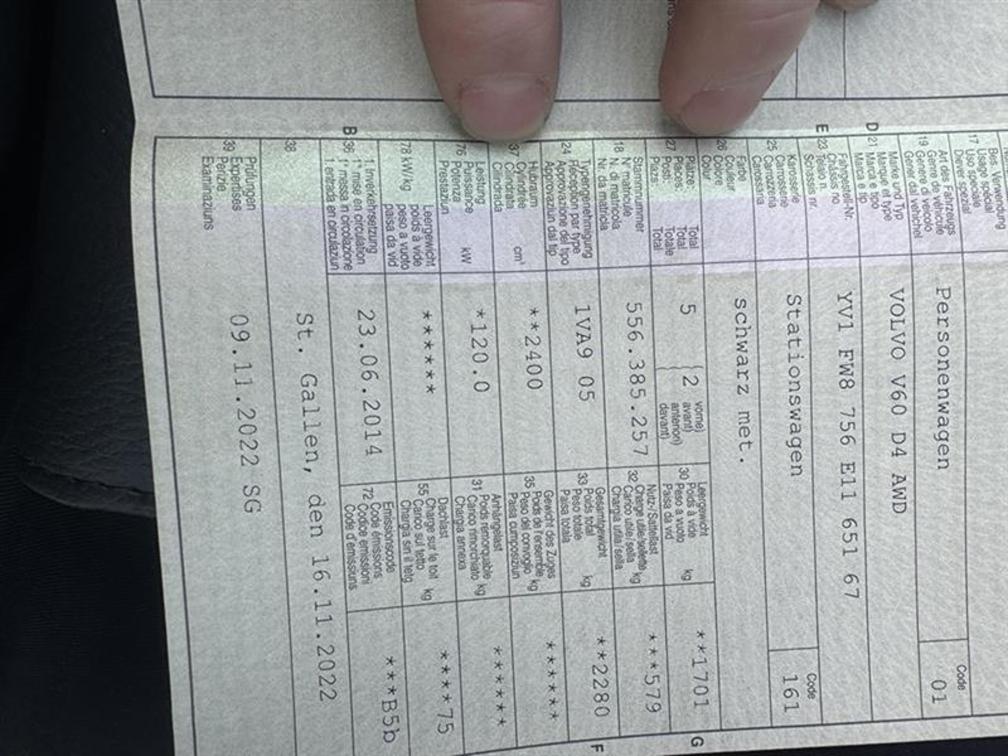 Bes. Verwendung
Usage spécial
17 Uso speciale
Diever spezial
Art des Fahrzeugs
Genre de véhicule
19 Genere di veicolo
Gener dal vehichel
Personenwagen
Code
01
Marke und Typ
Marque et type
D 21 Marca e tipo
Marca e tip
VOLVO V60 D4 AWD
Fahrgestell-Nr.
Châssis no
E 23 Telaio n.
Schassis nr.
YV1 FW8 756 E11 651 67
Karosserie
Carrosserie
25 Carrozzeria
Carossaria
Stationswagen
Code
161
Farbe
Couleur
26 Colore
Colur
schwarz met.
Plätze: Total
Places: Total
27 Posti: Totale
Plazs: Total
5
2
vorne)
avant)
anteriori)
davant)
Leergewicht
30 Poids à vide
Peso a vuoto kg
Paisa da vid
**1701
G
Stammnummer
N° matricule
18 N. di matricola
Nr. da matricla
556.385.257
Nutz-/Sattellast
32 Charge utile/sellette kg
Carico utile/sella
Chargia utila/sella
***579
Typengenehmigung
24 Réception par type
Approvazione del tipo
Approvaziun dal tip
1VA9 05
Gesamtgewicht
33 Poids total
Peso totale kg
Paisa totala
**2280
F
Hubraum
Cylindrée
37 Cilindrata cm³
Cilindrada
**2400
Gewicht des Zuges
35 Poids de l'ensemble kg
Peso del convoglio
Paisa cumposiziun
******
Leistung
Puissance
76 Potenza kW
Prestaziun
*120.0
Anhängelast
31 Poids remorquable kg
Carico rimorchiato
Chargia annexa
******
Leergewicht
78 kW/kg poids à vide
peso a vuoto
paisa da vid
******
Dachlast
55 Charge sur le toit kg
Carico sul tetto
Chargia sin il tetg
****75
1. Inverkehrsetzung
B 36 1re mise en circulation
1a messa in circolazione
1. entrada en circulaziun
23.06.2014
Emissionscode
72 Code émissions
Codice emissioni
Code d'emissiuns
***B5b
38
St. Gallen, den 16.11.2022
Prüfungen
39 Expertises
Perizie
Examinaziuns
09.11.2022 SG